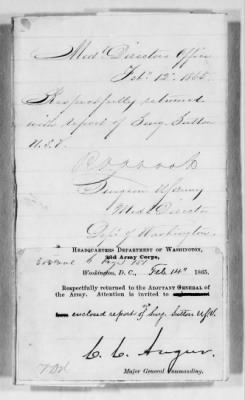 Med. Director's Office
Feb. 12th 1865.
Respectfully returned
with report of Surg. Sutton
U.S.V.
Surgeon U.S. Army
Med. Director
Dept. of Washington.
HEADQUARTERS DEPARTMENT OF WASHINGTON,
22d Army Corps,
Washington, D. C., Feb 14th 1865.
Respectfully returned to the ADJUTANT GENERAL of
the Army. Attention is invited to
enclosed report of Surg. Sutton U.S.V.
C. C. Augur.
Major General Commanding.